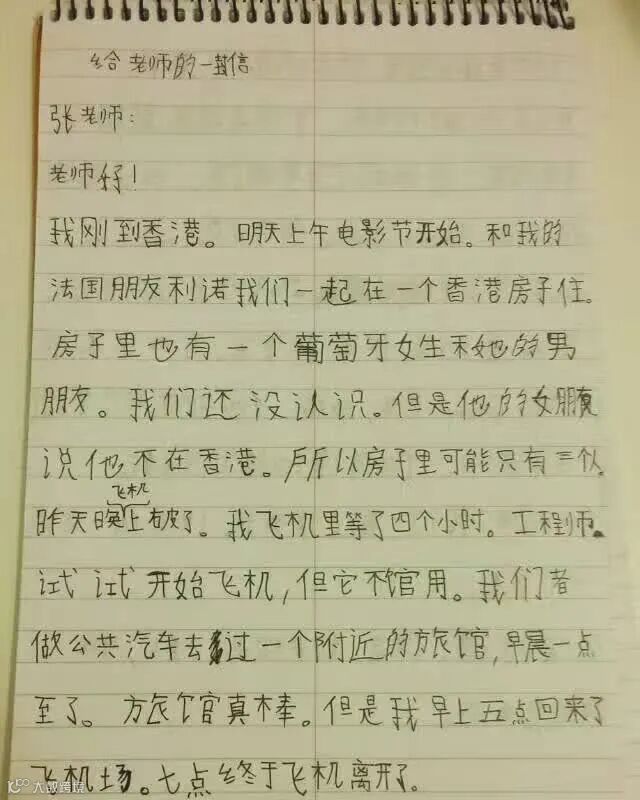 给老师的一封信
张老师：
老师好！
我刚到香港。明天上午电影节开始。和我的
法国朋友利诺我们一起在一个香港房子住。
房子里也有一个葡萄牙女生和她的男
朋友。我们还没认识。但是他的女朋友
说他不在香港。所以房子里可能只有三个人
飞机
昨天晚上破了。我飞机里等了四个小时。工程师
试试开始飞机，但它不管用。我们者
做公共汽车去过一个附近的旅馆，早晨一点
至了。旅馆真棒。但是我早上五点回来了
飞机场。七点终于飞机离开了。
大数跨境